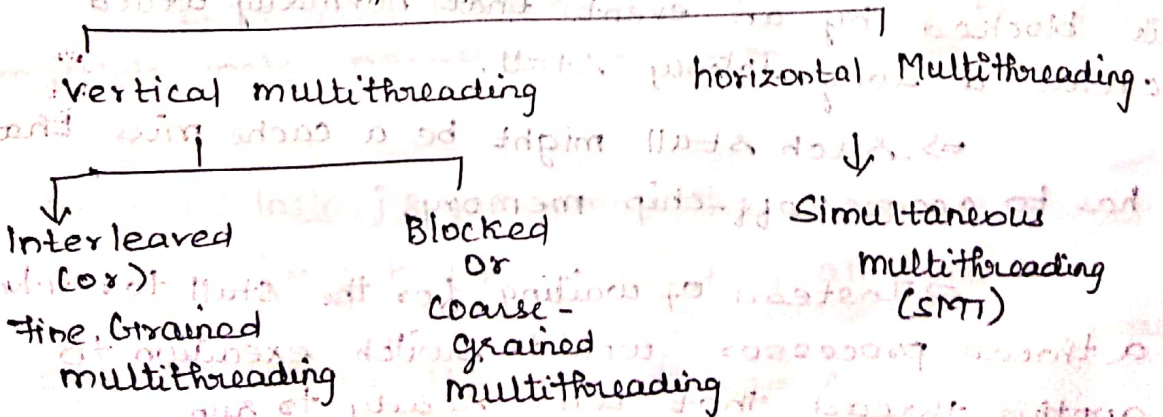 Vertical multithreading
horizontal Multithreading.
Interleaved
(or)
Fine Grained
multithreading
Blocked
or
Coarse-
grained
multithreading.
Simultaneous
multithreading
(SMT)